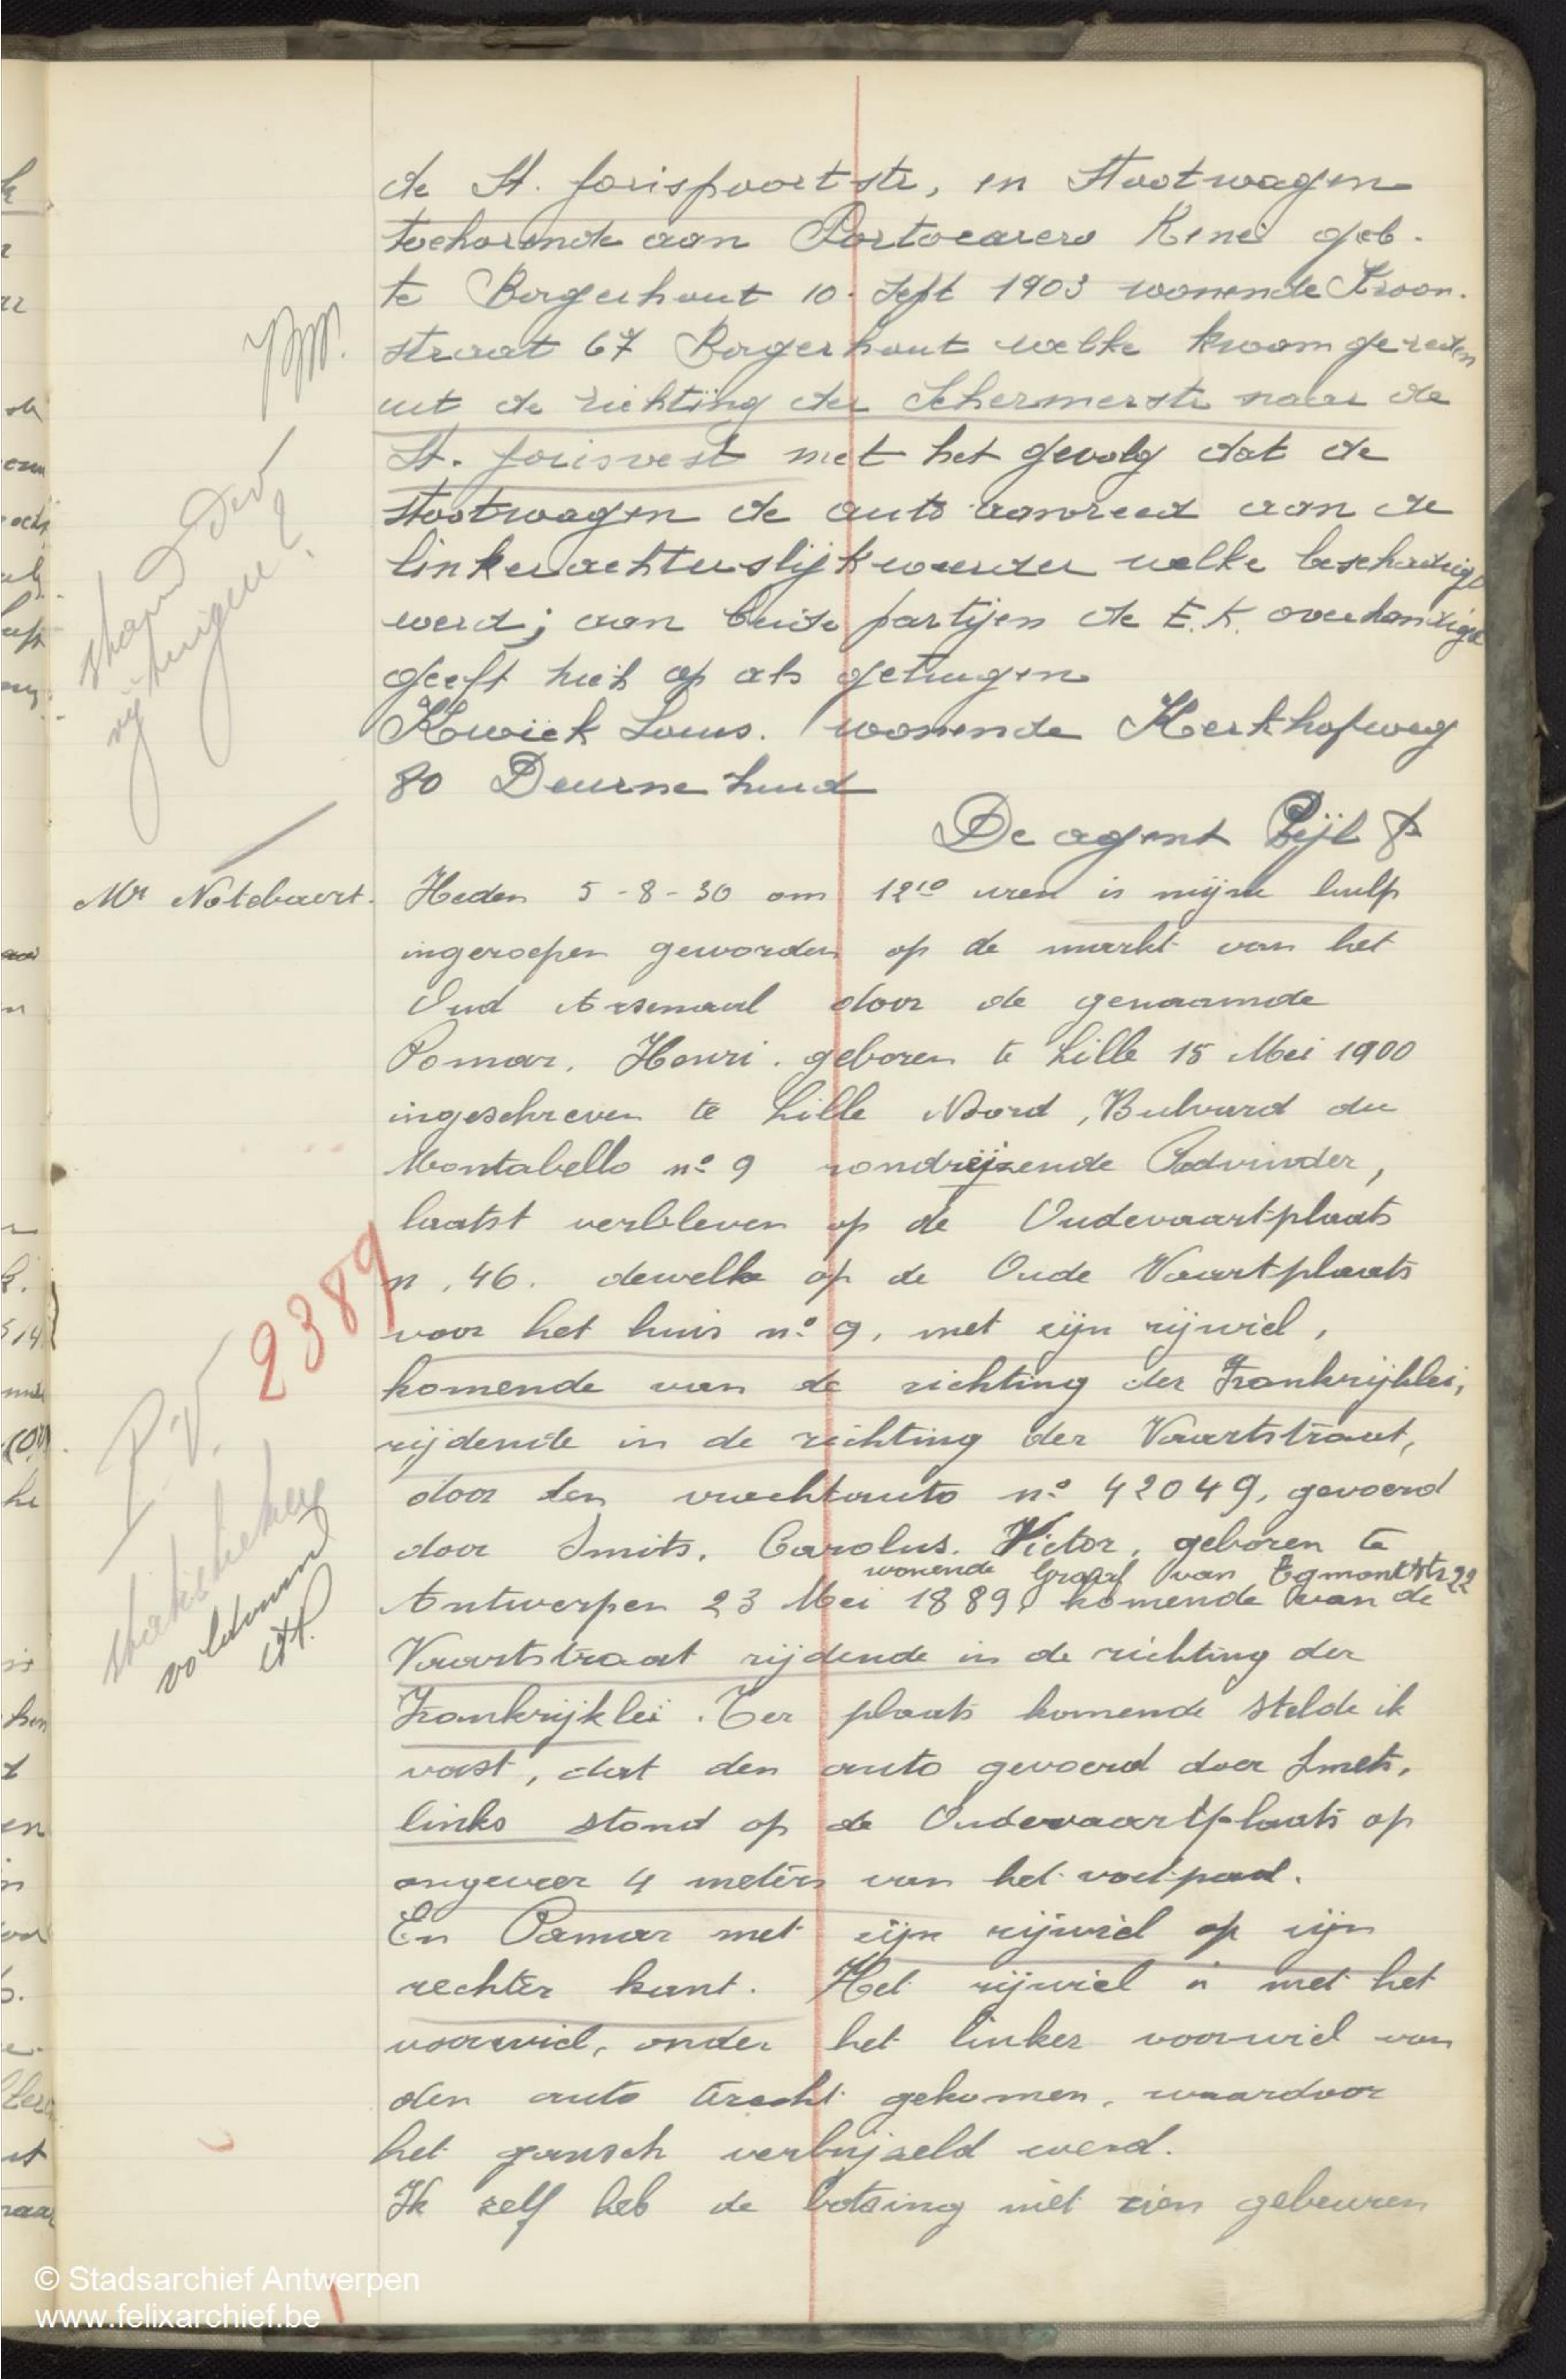 de St. Jorispoortstr, en Stootwagen
toehorende aan Portocarero René geb.
te Borgerhout 10 Sept 1903 wonende Kroon-
straat 67 Borgerhout welke kwam gereden
uit de richting der Schermerstr naar de
St. Jorisvest met het gevolg dat de
stootwagen de auto aanreed aan de
linkerachterslijkweerder welke beschadigd
werd; aan beide partijen de E.K. overhandigd
geeft hiets op als getuigen
Kwick Louis. wonende Kerkhofweg
80 Deurne Zuid
De agent Pijl
Mr Notebaert.
Heden 5-8-30 om 12¹⁰ uren is mijne hulp
ingeroepen geworden op de markt van het
Oud Arsenaal door de genaamde
Pomar, Henri. geboren te Lille 15 Mei 1900
ingeschreven te Lille Noord, Bulvard du
Montabello nº 9 rondreijzende Padvinder,
laatst verbleven op de Oudevaartplaats
n. 46. dewelke op de Oude Vaartplaats
voor het huis nº 9, met zijn rijwiel,
komende van de richting der Frankrijklei,
rijdende in de richting der Vaartstraat,
door den vrachtauto nº 42049, gevoerd
door Smits, Carolus. Victor, geboren te
wonende Graaf van Egmontstr 22
Antwerpen 23 Mei 1889, komende van de
Vaartstraat rijdende in de richting der
Frankrijklei. Ter plaats komende stelde ik
vast, dat den auto gevoerd door Smets,
links stond op de Oudevaartplaats op
ongeveer 4 meters van het voetpad.
En Pamar met zijn rijwiel op zijn
rechter kant. Het rijwiel is met het
voorwiel, onder het linker voorwiel van
den auto terecht gekomen, waardoor
het gansch verbrijzeld werd.
Ik zelf heb de botsing niet zien gebeuren
2389
P.V.
voldoende
© Stadsarchief Antwerpen
www.felixarchief.be